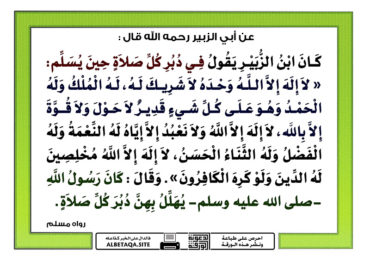 عن أبي الزبير رحمه الله قال :
كَانَ ابْنُ الزُّبَيْرِ يَقُولُ فِي دُبُرِ كُلِّ صَلاَةٍ حِينَ يُسَلِّمُ:
« لاَ إِلَهَ إِلاَّ اللَّهُ وَحْدَهُ لاَ شَرِيكَ لَهُ، لَهُ الْمُلْكُ وَلَهُ
الْحَمْدُ وَهُوَ عَلَى كُلِّ شَيْءٍ قَدِيرٌ لاَ حَوْلَ وَلاَ قُوَّةَ
إِلاَّ بِاللَّهِ، لاَ إِلَهَ إِلاَّ اللَّهُ وَلاَ نَعْبُدُ إِلاَّ إِيَّاهُ لَهُ النِّعْمَةُ وَلَهُ
الْفَضْلُ وَلَهُ الثَّنَاءُ الْحَسَنُ، لاَ إِلَهَ إِلاَّ اللَّهُ مُخْلِصِينَ
لَهُ الدِّينَ وَلَوْ كَرِهَ الْكَافِرُونَ ». وَقَالَ : كَانَ رَسُولُ اللَّهِ
-صلى الله عليه وسلم- يُهَلِّلُ بِهِنَّ دُبُرَ كُلِّ صَلاَةٍ.
رواه مسلم
فالدال على الخير كفاعله
ALBETAQA.SITE
احرص على طباعة
ونشر هذه الورقة